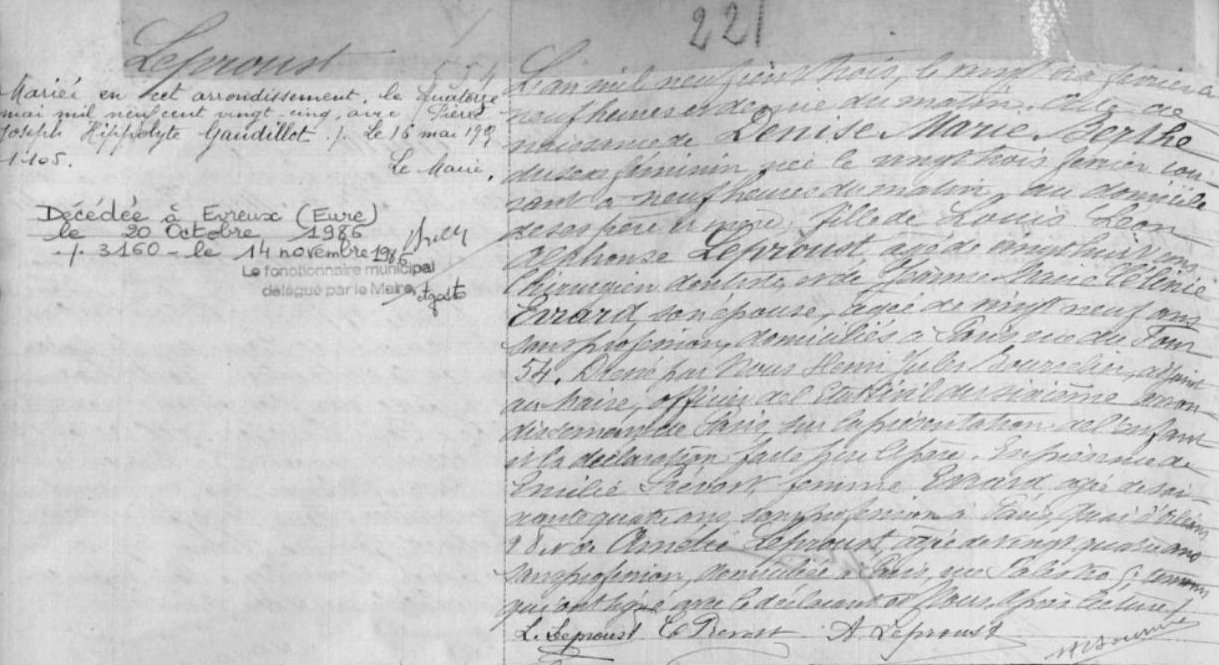 221
Leproust
Mariée en cet arrondissement, le quatorze
mai mil neuf cent vingt-cinq, avec Pierre
Joseph Hippolyte Gaudillot ./. Le 16 mai 192
1405.
Le Maire,
Décédée à Evreux (Eure)
le 20 Octobre 1986
./. 3160 - le 14 novembre 1986
Le fonctionnaire municipal
délégué par le Maire
L'an mil neuf cent trois, le vingt trois février à
neuf heures et demie du matin. Acte de
naissance de Denise Marie Berthe
du sexe féminin, née le vingt trois février cou-
rant à neuf heures du matin, au domicile
de ses père et mère, fille de Louis Léon
Alphonse Leproust, âgé de vingt huit ans
Chirurgien dentiste, et de Jeanne Marie
Evrard, son épouse, âgée de vingt neuf ans
sans profession, domiciliés à Paris, rue du Four
54. Dressé par Nous Henri Jules Bourdeix, adjoint
au Maire, officier de l'Etat Civil du sixième arron-
dissement de Paris, sur la présentation de l'enfant
et la déclaration faite par le père. En présence de
Emilie Prévost, femme Evrard, âgée de soi-
xante quatre ans, sans profession à Paris, quai d'Orléans
28, et de Amélie Leproust, âgée de vingt quatre ans
sans profession, domiciliée à Paris, rue Palestro 5, témoins
qui ont signé avec le déclarant et Nous, après lecture./.
L. Leproust E Prevost A Leproust